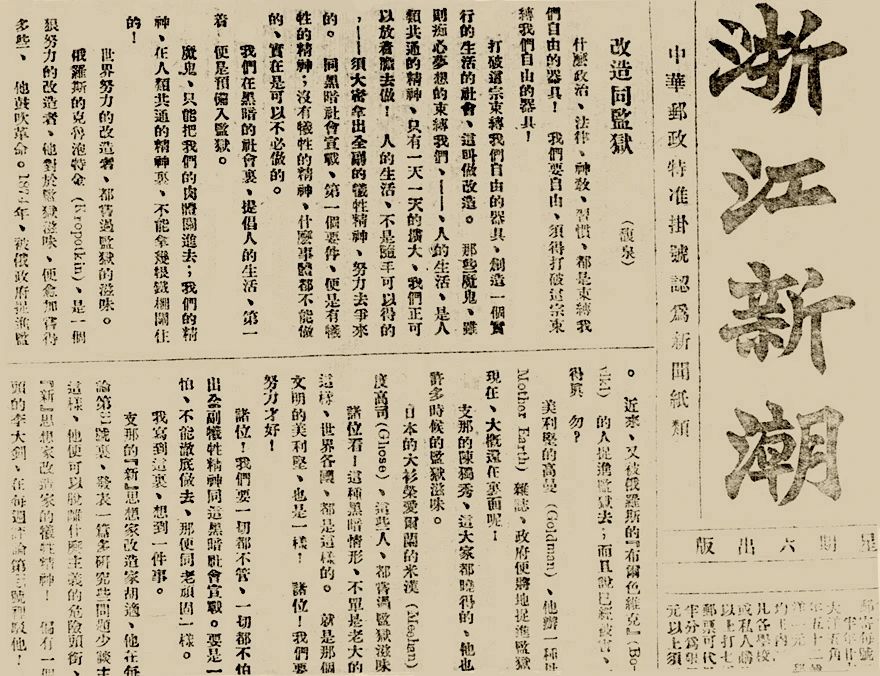 浙江新潮
中華郵政特准掛號認爲新聞紙類
星期六出版
改造同監獄
(馥泉)
什麽政治、法律、神敎、習慣、都是束縛我
們自由的器具！ 我們要自由、須得打破這宗束
縛我們自由的器具！
打破這宗束縛我們自由的器具、創造一個實
行的生活的社會、這叫做改造。 那些魔鬼、雖
則痴心夢想的束縛我們、——、人的生活、是人
類共通的精神、只有一天一天的擴大、我們正可
以放着膽去做！ 人的生活、不是隨手可以得的
、——須大家拿出全副的犠牲精神、努力去爭來
的。 同黑暗社會宣戰、第一個要件、便是有犠
牲的精神；沒有犠牲的精神、什麽事體都不能做
的、實在是可以不必做的。
我們在黑暗的社會裏、提倡人的生活、第一
着、便是預備入監獄。
魔鬼、只能把我們的肉體關進去；我們的精
神、在人類共通的精神裏、不能拿幾根鐵柵關住
的！
世界努力的改造者、都嘗過監獄的滋味。
俄羅斯的克魯泡特金(Kropotkin)、是一個
狠努力的改造者、他對於監獄滋味、便愈加嘗得
多些、 他鼓吹革命。1874年、被俄政府捉進監
。 近來、又被俄羅斯的『布爾色維克』(Bo-
的人捉進監獄去；而且說已經被害、
得眞 勿？
美利堅的高曼 (Goldman)、他辦一種
Mother Earth) 雜誌、政府便將他捉進監獄
現在、大槪還在裏面呢！
支那的陳獨秀、這大家都曉得的、他也
許多時候的監獄滋味。
日本的大杉榮愛爾蘭的米漢 (Meehan)
度高司(Ghose)、這些人、都嘗過監獄滋味
諸位看！這種黑暗情形、不單是老大的
這樣、世界各國、都是這樣的。 就是那個
文明的美利堅、也是一樣！ 諸位！我們要
努力才好！
諸位！我們要一切都不管、一切都不怕
出全副犠牲精神同這黑暗社會宣戰。要是一
怕、不能澈底做去、那便同老頑固一樣。
我寫到這裏、想到一件事。
支那的『新』思想家改造家胡適、他在每
論第31號裏、發表一篇多研究些問題少談主
這樣、他便可以脫離什麽主義的危險頭銜、
『新』思想家改造家的犠牲精神！ 倘有一個
頭的李大釗、在每週評論第 號裏駁他！
郵寄每號
半年廿
大洋五角
年五十二號
洋一元
凡各學校
或私人爲
以上打七
郵票可代
半分爲限
元以上須